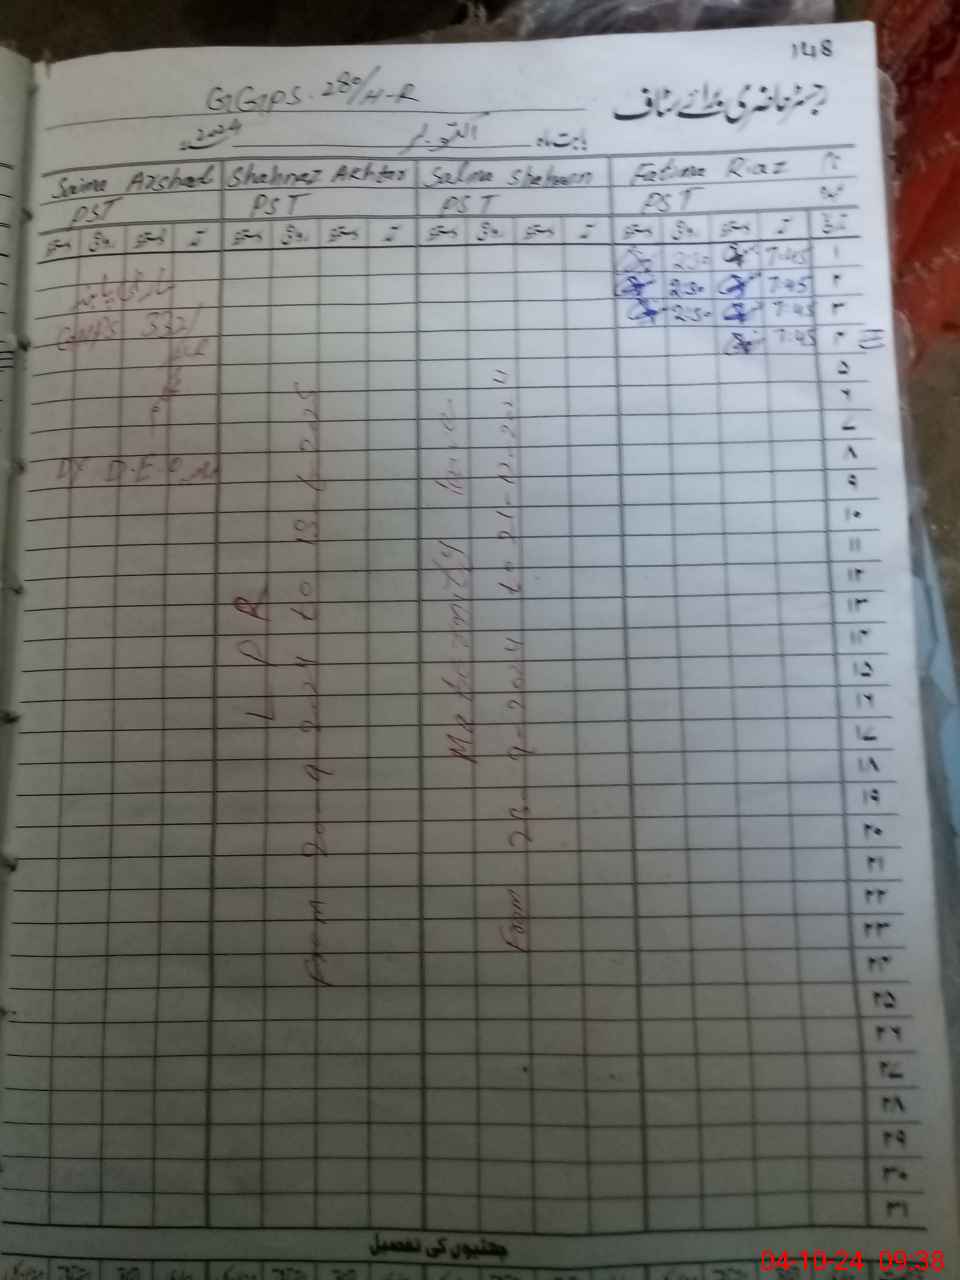 148
GGPS. 280/H-R
رجسٹر حاضری برائے سٹاف
بابت ماہ اکتوبر 2024
Saima Arshad Shahnaz Akhtar Salma Shaheen Fatima Riaz نام
PST PST PST PST عہدہ
دستخط روانگی دستخط آمد دستخط روانگی دستخط آمد دستخط روانگی دستخط آمد دستخط روانگی دستخط آمد تاریخ
2:30 7:45 ۱
2:30 7:45 ۲
2:30 7:45 ۳
7:45 ۴
GMPS 332/
HR
Dy D.E.O
L P R
From 20-9-2024 to 19
Maternity
From 23-9-2024 to 21-12-2024
۵
۶
۷
۸
۹
۱۰
۱۱
۱۲
۱۳
۱۴
۱۵
۱۶
۱۷
۱۸
۱۹
۲۰
۲۱
۲۲
۲۳
۲۴
۲۵
۲۶
۲۷
۲۸
۲۹
۳۰
۳۱
چھٹیوں کی تفصیل
04-10-24 09:38